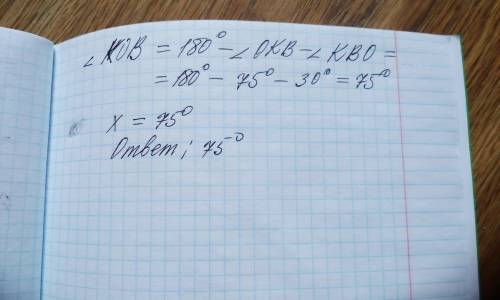 ∠KOB = 180° - ∠OKB - ∠KBO =
= 180° - 75° - 30° = 75°
x = 75°
Ответ; 75°